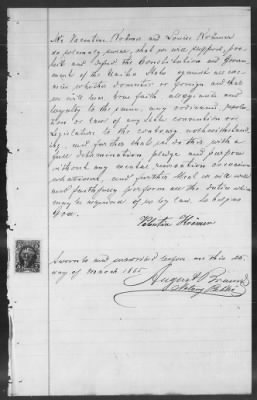 We Valentin Krämer and Louis Krämer
do solemnly swear, that we will support, pro-
tect and defend the Constitution and Govern-
ment of the United States against all ene-
mies whether domestic or foreign and that
we will bear true faith allegiance and
loyalty to the same, any ordinance, resolu-
tion or law of any State convention or
Legislature to the contrary notwithstand-
ing, and further that we do this with a
full determination, pledge and purpose
without any mental reservation or evasion
whatsoever, and further that we will well
and faithfully perform all the duties which
may be required of us by law. So help us
God.
Valentin Krämer
Sworn to and subscribed before me this
day of March 1865
August
Notary Public